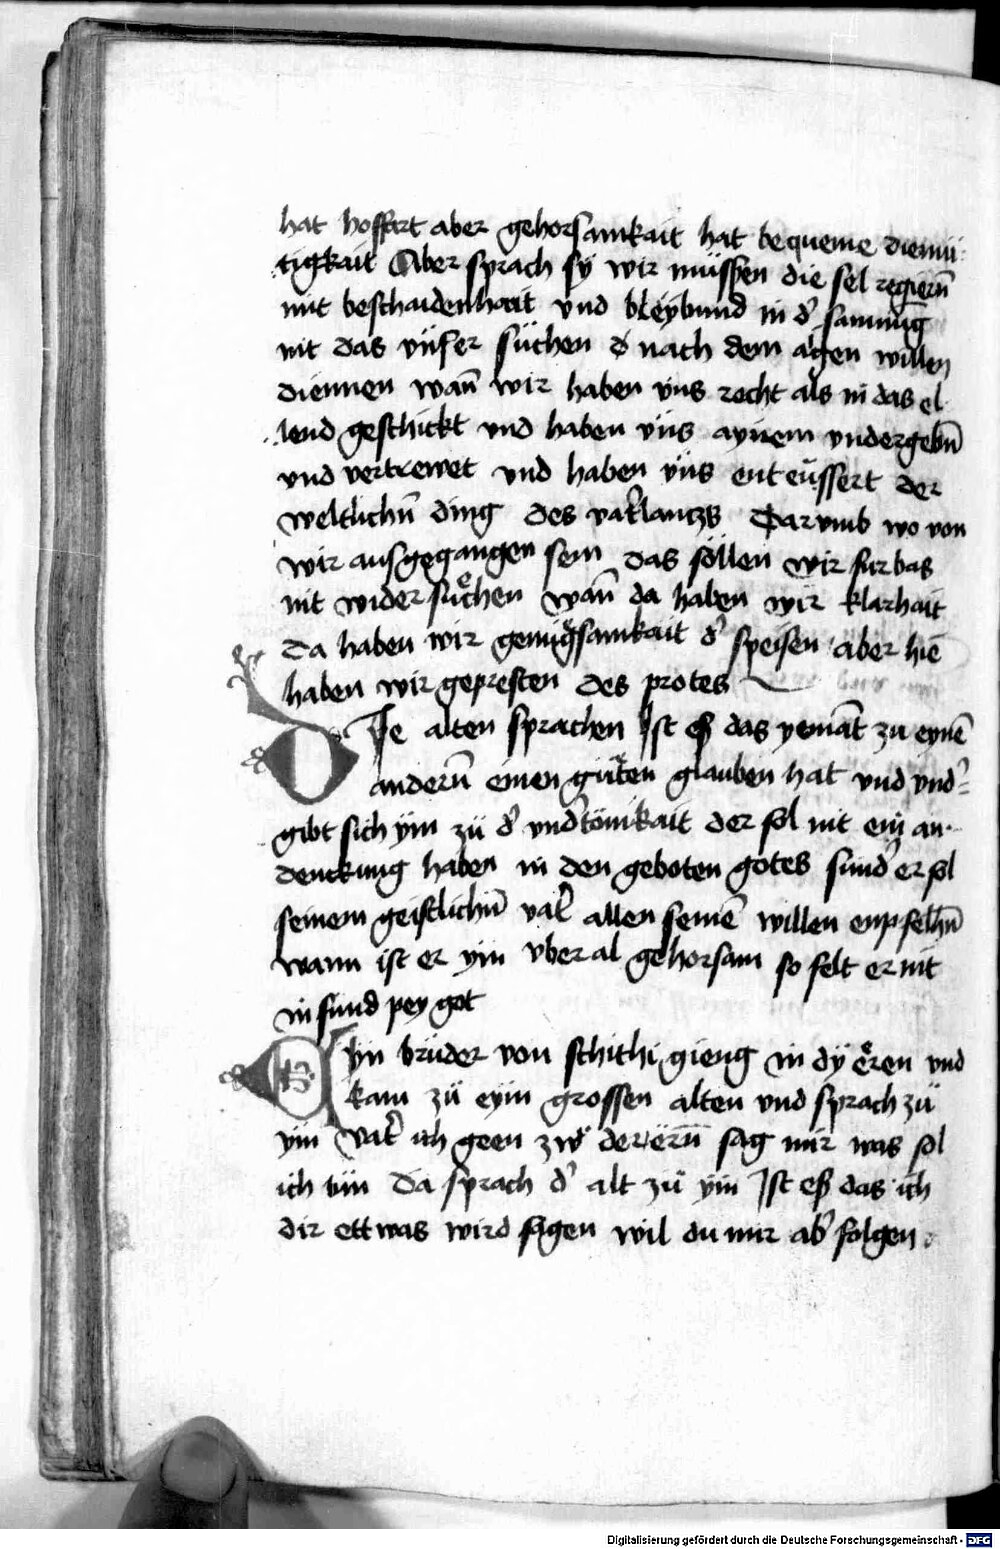 hat hoffart aber gehorsamkait hat bequeme diemü
tigkait Aber sprach sÿ wir müssen die sel regiern̄
mit beschaidenhait vnd bleÿbund in d' samnūg
nit das vnser süchen d' nach dem aigen willen
diennen wan̄ wir haben vns recht als in das el
lend geschickt vnd haben vns aynem vndergebn̄
vnd vertrewet vnd haben vns enteüssert der
weltlichn̄ ding des vat'lantzs Darvmb wo von
wir ausgegangen sein das söllen wir furbas
nit wider suͤchen wan̄ da haben wir klarhait
Da haben wir genuͤgsamkait d' speisen aber hie
haben wir gepresten des protes
DIe alten sprachen Ist eß das yemāt zu eynē
andern̄ einen guͤten glauben hat vnd vnd'
gibt sich ÿm zü d' vnd'tönikait der sol nit ein an
denckung haben in den geboten gotes sund' er sol
seinem geistlichn̄ vat' allen seinē willen enpfelhn̄
wann ist er ym vberal gehorsam so felt er nit
in sund pey got
Eyn brüder von schithi gieng in dÿ eͤren vnd
kam zü eyin grossen alten vnd sprach zü
ym vat' ich geen zw der ern̄ sag mir was sol
ich tün Da sprach d' alt zü ym Ist eß das ich
dir ettwas wird sagen wil du mir ab' folgen
Digitalisierung gefördert durch die Deutsche Forschungsgemeinschaft - DFG